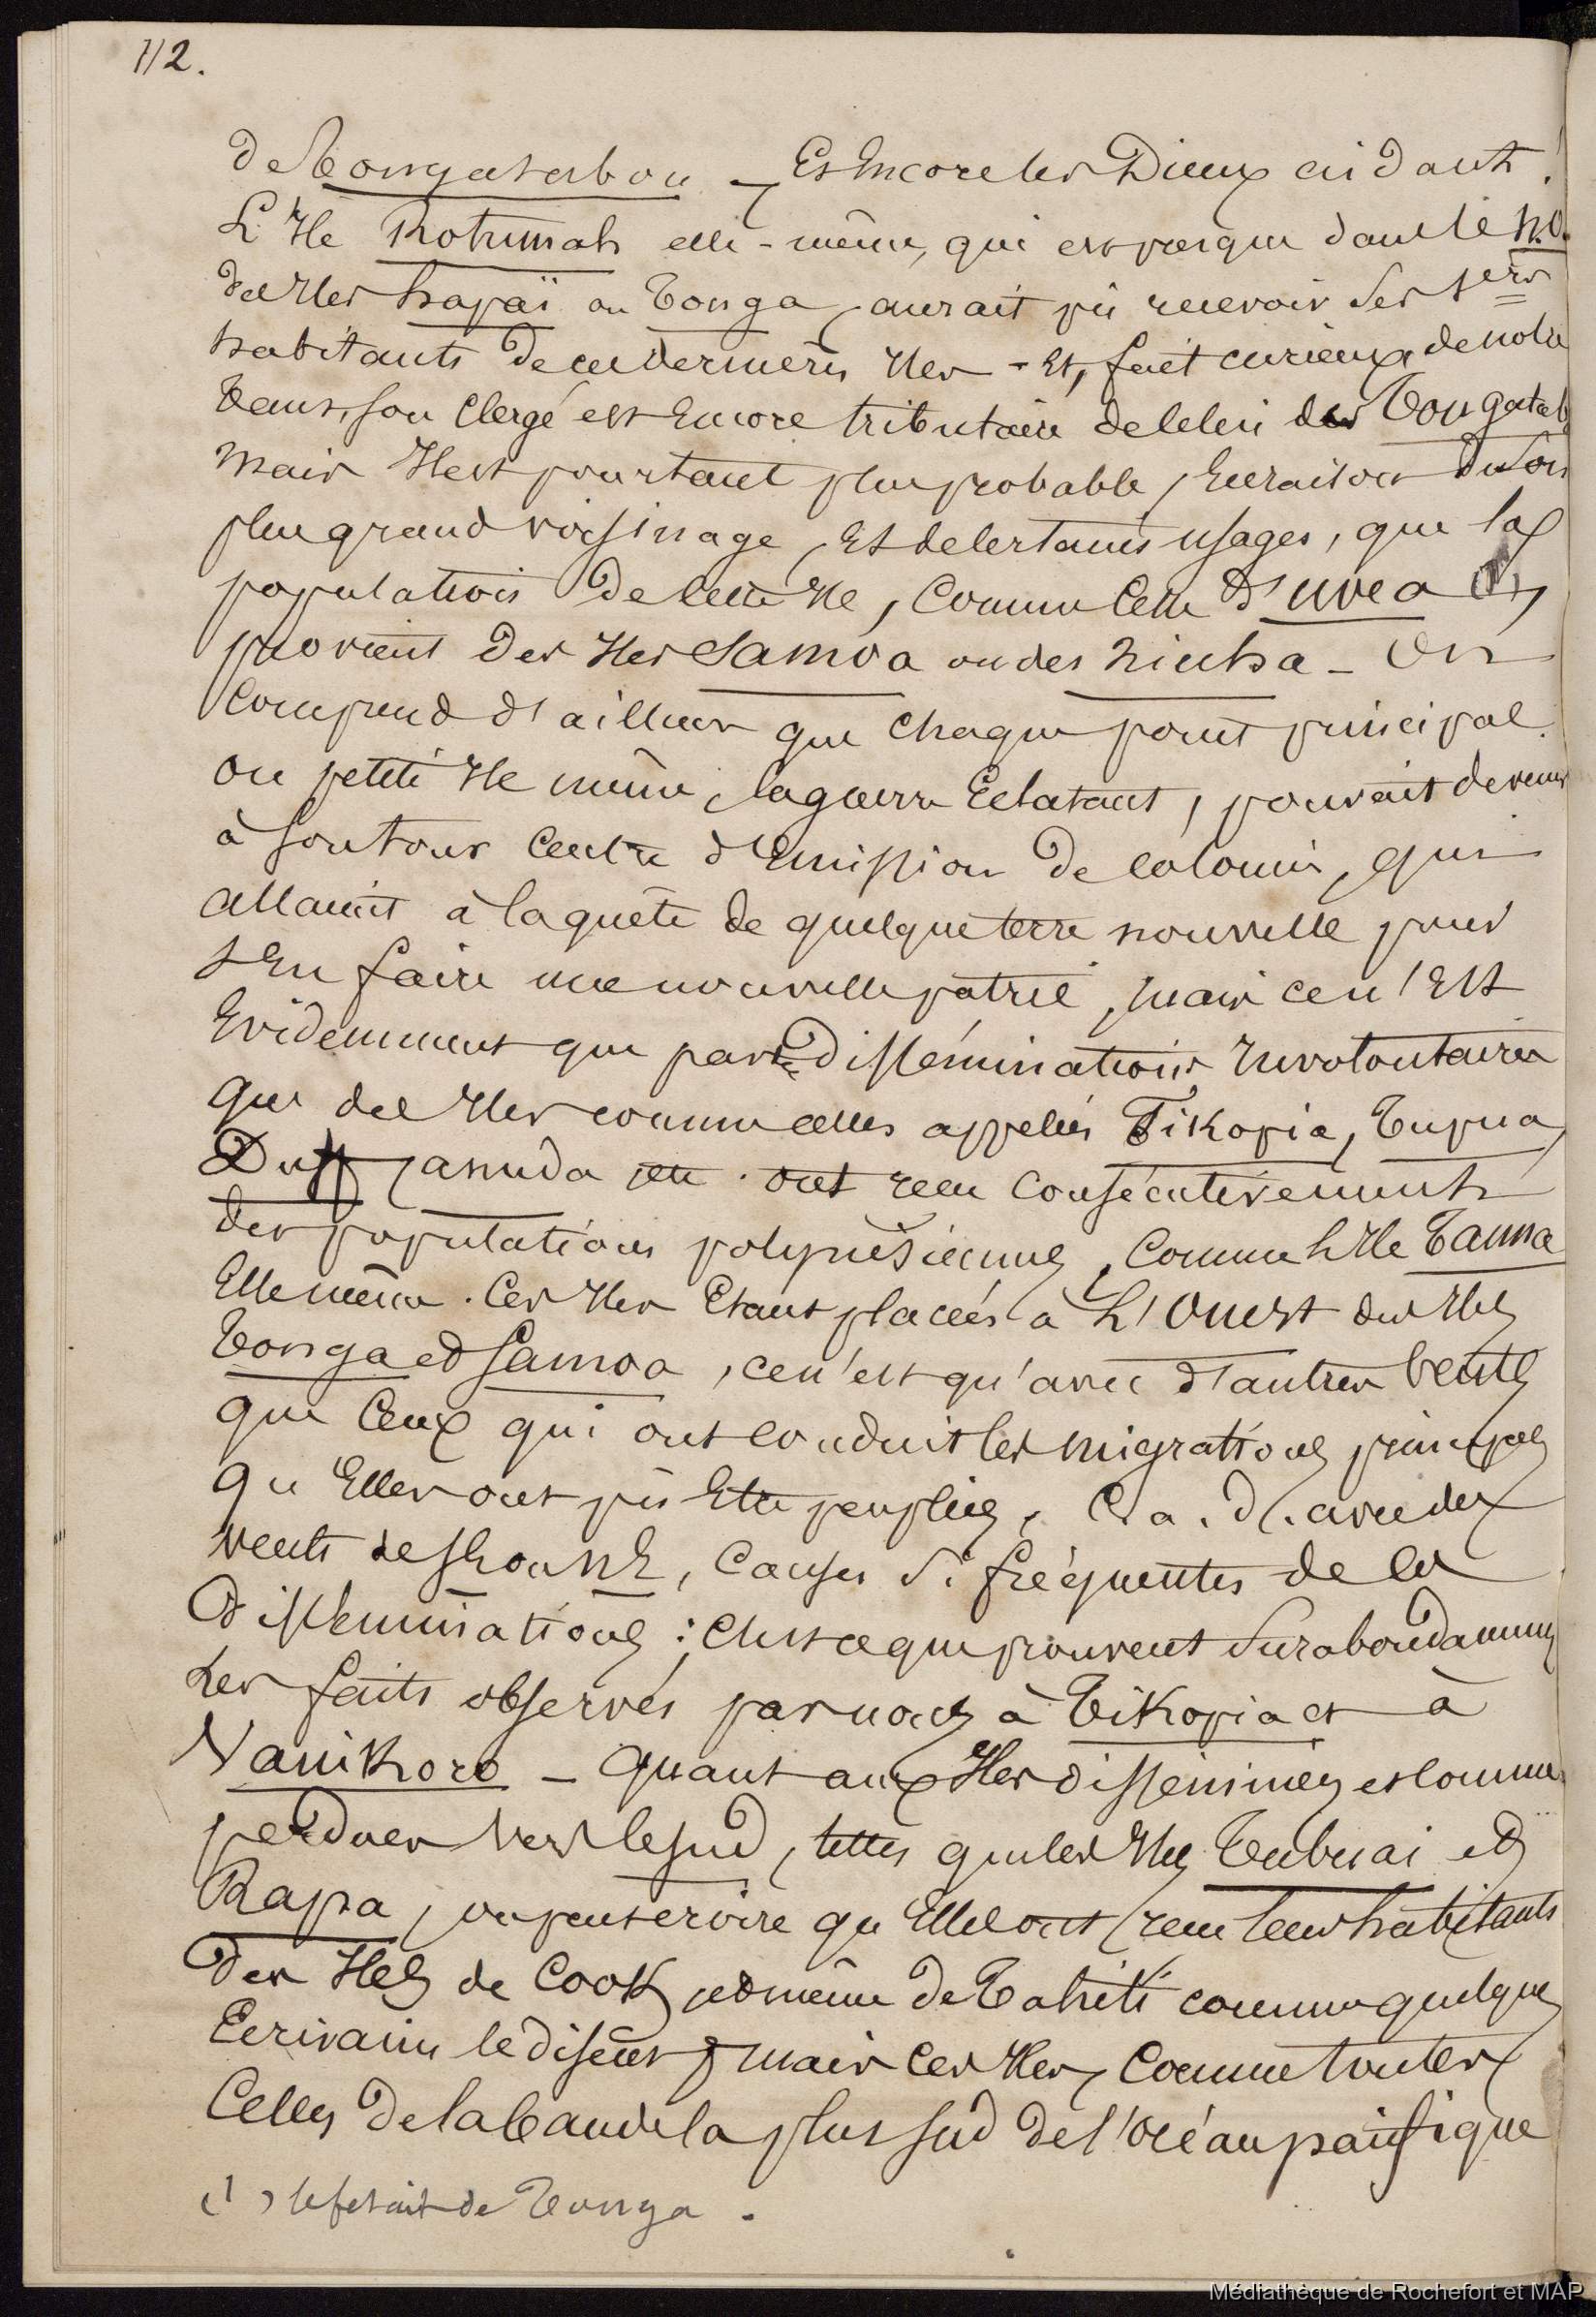 112.
de Tongatabou — Et encore les Dieux aidant !
L'Ile Rotumah elle-même, qui est presque dans le N.O.
des Iles hapaï ou Tonga, aurait pû recevoir ses 1ers
habitants de ces dernières Iles - Et, fait curieux de notre
temps, son Clergé est Encore tributaire de celui des Tongatab
mais Il est pourtant plus probable, En raison du son
plus grand voisinage, Et de certains usages, que la
population de cette Ile, Comme celle d'uvea (1),
provient des Iles Samoa ou des niuha - On
comprend d'ailleurs que chaque point principal
ou petite Ile même, la guerre Eclatant, pouvait devenir
à son tour centre d'Emission de colonies, qui
allaient à la quête de quelque terre nouvelle pour
s'En faire une nouvelle patrie, mais ce n'Est
Evidemment que par dissémination Involontaire
que des Iles comme celles appelées Tikopia, Tupua,
Duff, anuda etc. ont reçu consécutivement
des populations polynésiennes, Comme L'Ile Tanna
Elle même. Ces Iles Etant placées à L'Ouest des Iles
Tonga et Samoa, ce n'est qu'avec d'autres vents
que Ceux qui ont conduit les migrations principales
qu'Elles ont pû Etre peuplées, C. a. d. avec des
vents de Sh ou NE, Causes si fréquentes de ces
disséminations : C'est ce que prouvent Surabondamment
Les faits observés par nous à Tikopia et à
Vanikoro - Quant aux Iles disséminées et comme
perdues vers le sud, telles que les Iles Tubuai et
Rapa, on peut croire qu'Elles ont reçu leurs habitants
des Iles de Cook, et même de Tahiti comme quelques
Ecrivains le disent, mais ces Iles, Comme toutes
Celles de la bande la plus sud de l'océan pacifique
(1) le ferait de Tonga.
Médiathèque de Rochefort et MAP